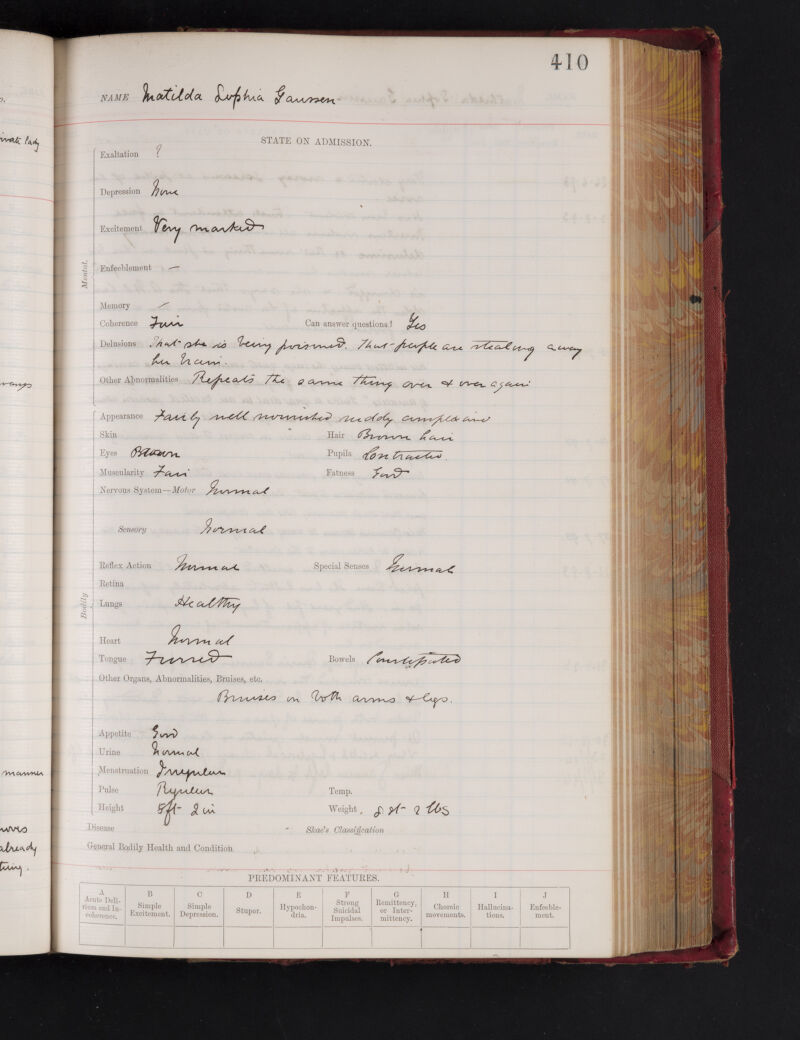 410
NAME Matilda Sophia Gaussen
STATE ON ADMISSION.
Mental.
Exaltation ?
Depression None
Excitement Very marked
Enfeeblement –
Memory –
Coherence Fair Can answer questions? Yes
Delusions That she is being poisoned. That people are stealing away
her brain.
Other Abnormalities Repeats the same thing over & over again
Bodily
Appearance Fairly well nourished ruddy complexion
Skin Hair Brown hair
Eyes Brown Pupils Contracted.
Muscularity Fair Fatness Good
Nervous System—Motor Normal
Sensory Normal
Reflex Action Normal Special Senses Normal
Retina
Lungs Healthy
Heart Normal
Tongue Furred Bowels Constipated
Other Organs, Abnormalities, Bruises, etc.
Bruises on both arms & legs.
Appetite Good
Urine Normal
Menstruation Irregular
Pulse Regular Temp.
Height 5ft 2 in Weight. 8 st 2 lbs
Disease Skae's Classification
General Bodily Health and Condition
PREDOMINANT FEATURES.
A Acute Delirium and Incoherence. B Simple Excitement. C Simple Depression. D Stupor. E Hypochondria. F Strong Suicidal Impulses. G Remittency, or Intermittency. H Choreic movements. I Hallucinations. J Enfeeblement.
private Party
manner
already